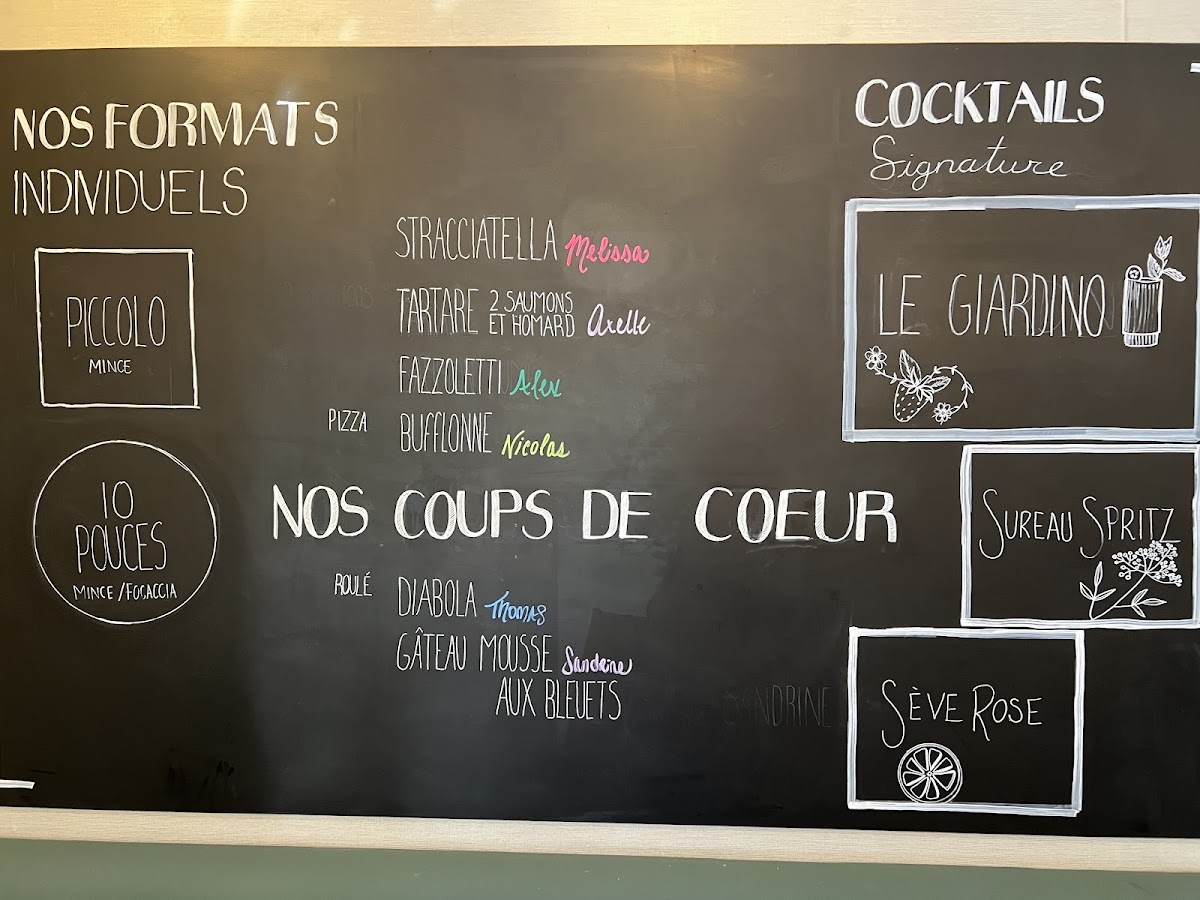 NOS FORMATS
INDIVIDUELS
PICCOLO
MINCE
10
POUCES
MINCE / FOCACCIA
STRACCIATELLA Melissa
TARTARE 2 SAUMONS
ET HOMARD Axelle
FAZZOLETTI Alex
PIZZA BUFFLONNE Nicolas
NOS COUPS DE COEUR
ROULÉ DIABOLA Thomas
GÂTEAU MOUSSE Sandrine
AUX BLEUETS
SANDRINE
COCKTAILS
Signature
LE GIARDINO
SUREAU SPRITZ
SÈVE ROSE